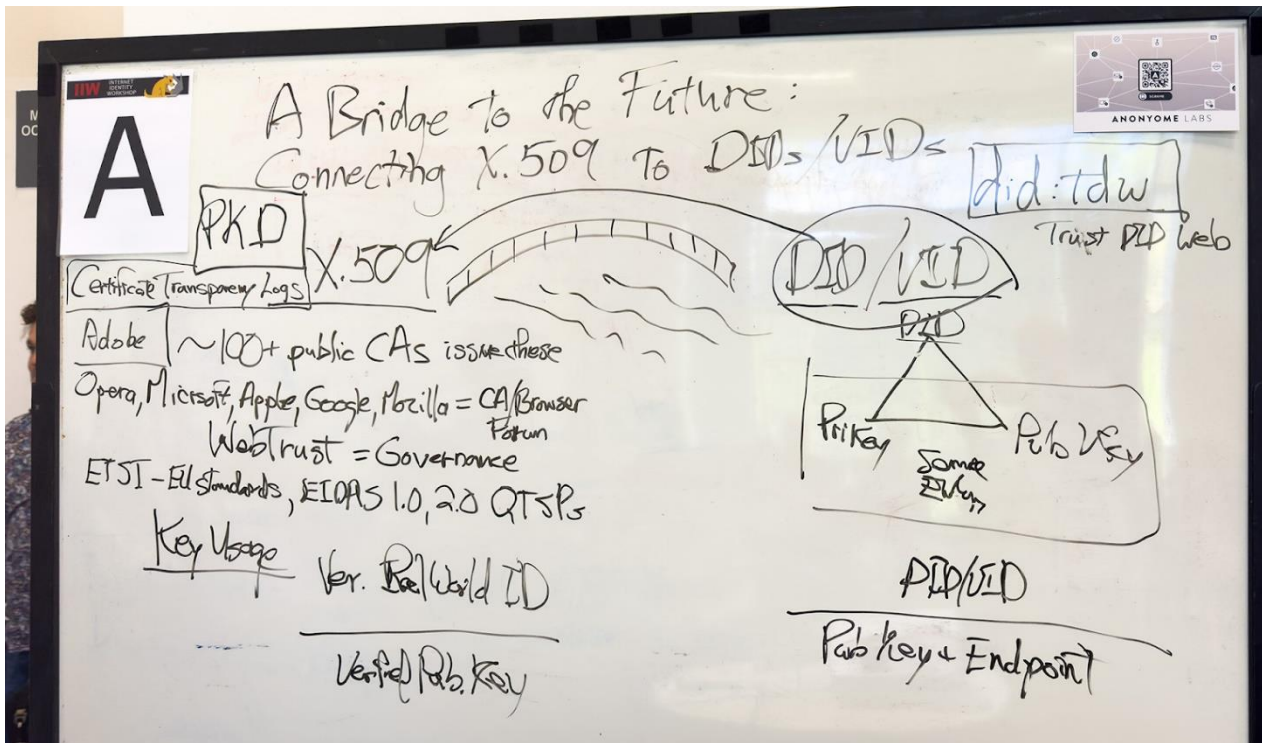 IIW INTERNET IDENTITY WORKSHOP
A
ANONYOME LABS
A Bridge to the Future:
Connecting X.509 To DIDs/VIDs
did:tdw
Trust DID Web
PKD
X.509
Certificate Transparency Logs
DID/VID
Adobe
~100+ public CAs issue these
Opera, Micrsoft, Apple, Google, Mozilla = CA/Browser
Forum
WebTrust = Governance
ETSI - EU standards, EIDAS 1.0, 2.0 QTSPs
Key Usage
Ver. Real World ID
Verified Pub. Key
DID
PriKey
Pub Key
Some
DID/VID
Pub Key + Endpoint